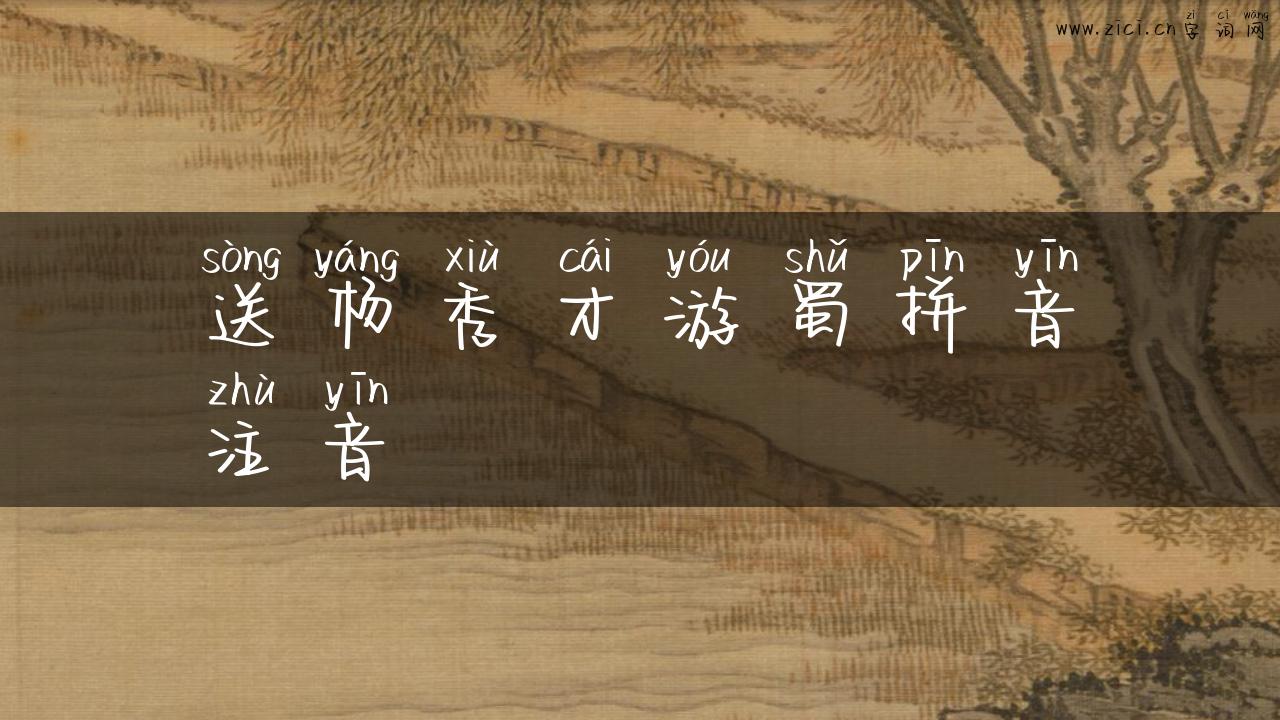 zì cí wǎng
www.zici.cn字词网
sòng yáng xiù cái yóu shǔ pīn yīn
送杨秀才游蜀拼音
zhù yīn
注音